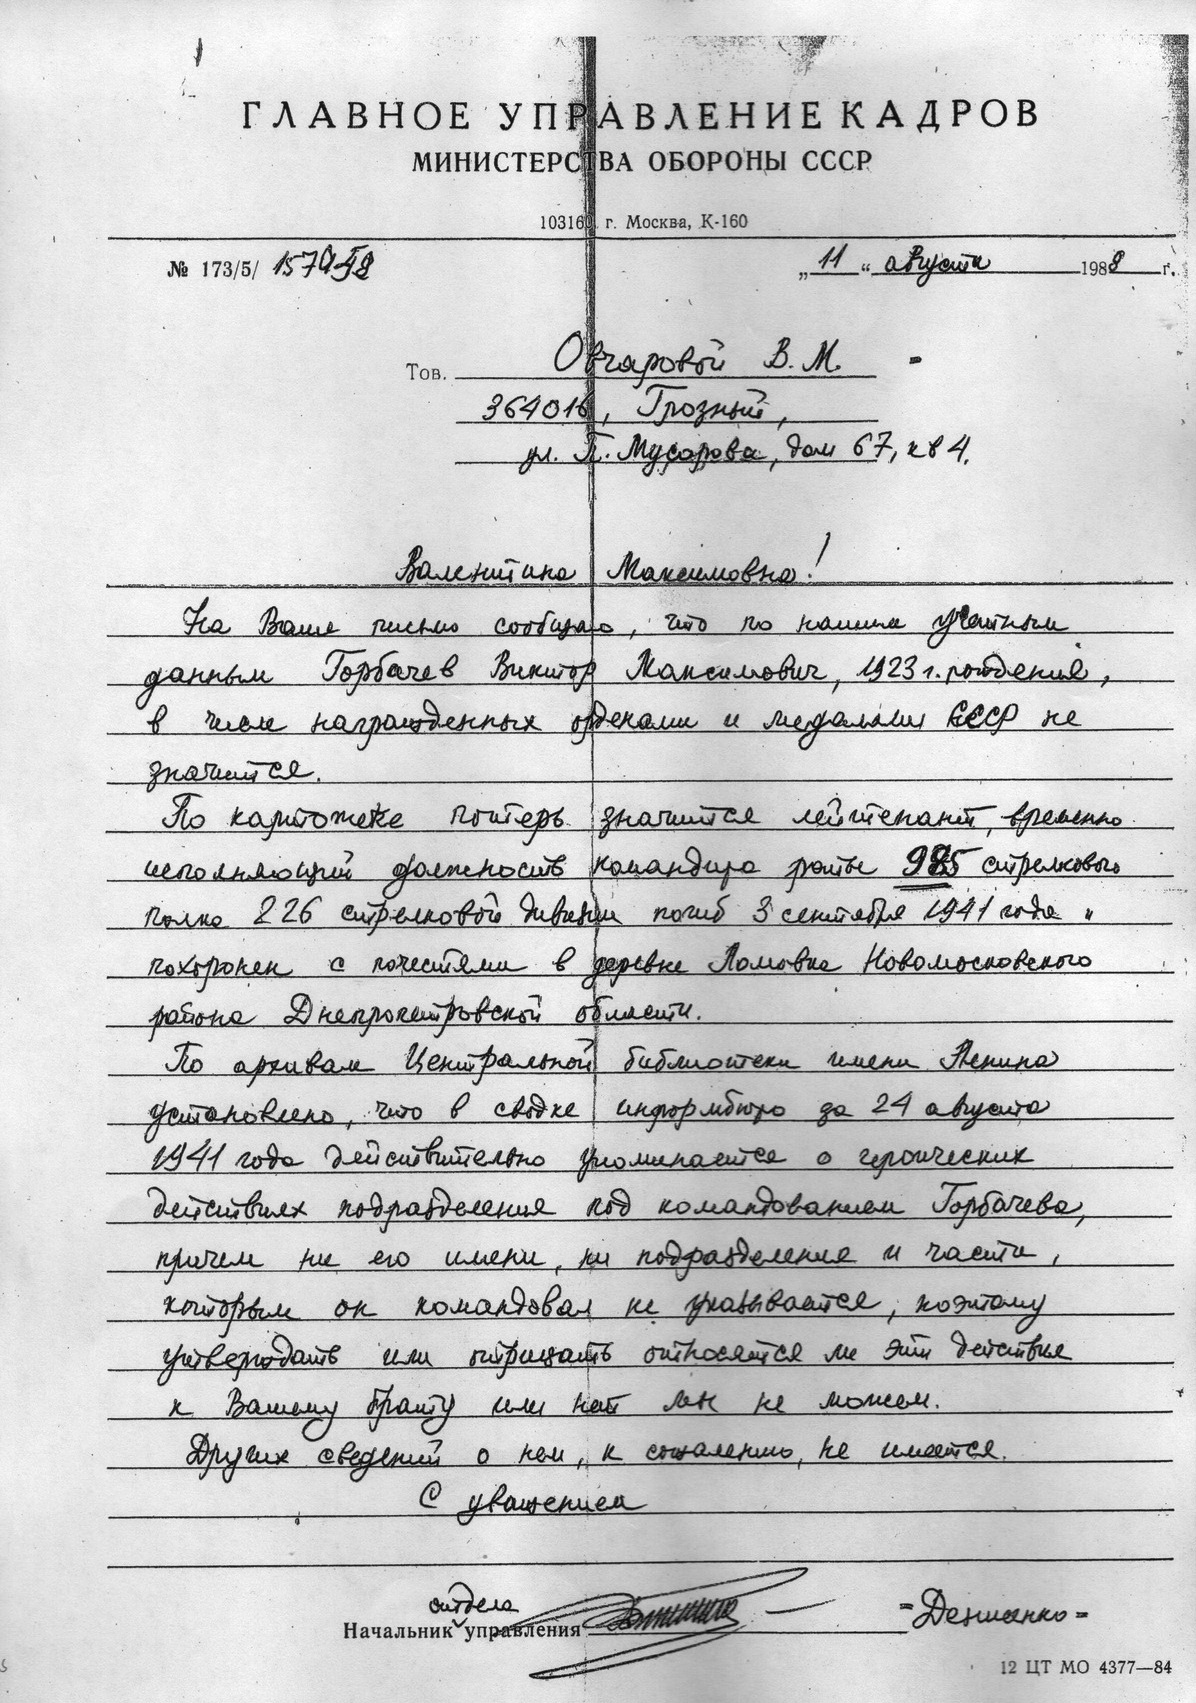 ГЛАВНОЕ УПРАВЛЕНИЕ КАДРОВ
МИНИСТЕРСТВА ОБОРОНЫ СССР
103160 г. Москва, К-160
№ 173/5/
„11“ августа 1988 г.
Тов. Овчаровой В. М.
364016, Грозный,
ул. П. Мусорова, дом 67, кв 4.
Валентина Максимовна!
На Ваше письмо сообщаю, что по нашим учетным
данным Горбачев Виктор Максимович, 1923 г. рождения,
в числе награжденных орденами и медалями СССР не
значится.
По картотеке потерь значится лейтенант, временно
исполняющий должность командира роты 985 стрелкового
полка 226 стрелковой дивизии погиб 3 сентября 1941 года и
похоронен с почестями в деревне Ломовка Новомосковского
района Днепропетровской области.
По архивам Центральной библиотеки имени Ленина
установлено, что в сводке информбюро за 24 августа
1941 года действительно упоминается о героических
действиях подразделения под командованием Горбачева,
причем ни его имени, ни подразделения и части,
которым он командовал не указывается, поэтому
утверждать или отрицать относятся ли эти действия
к Вашему брату или нет мы не можем.
Других сведений о нем, к сожалению, не имеется.
С уважением
отдела
Начальник управления =Демченко=
12 ЦТ МО 4377—84